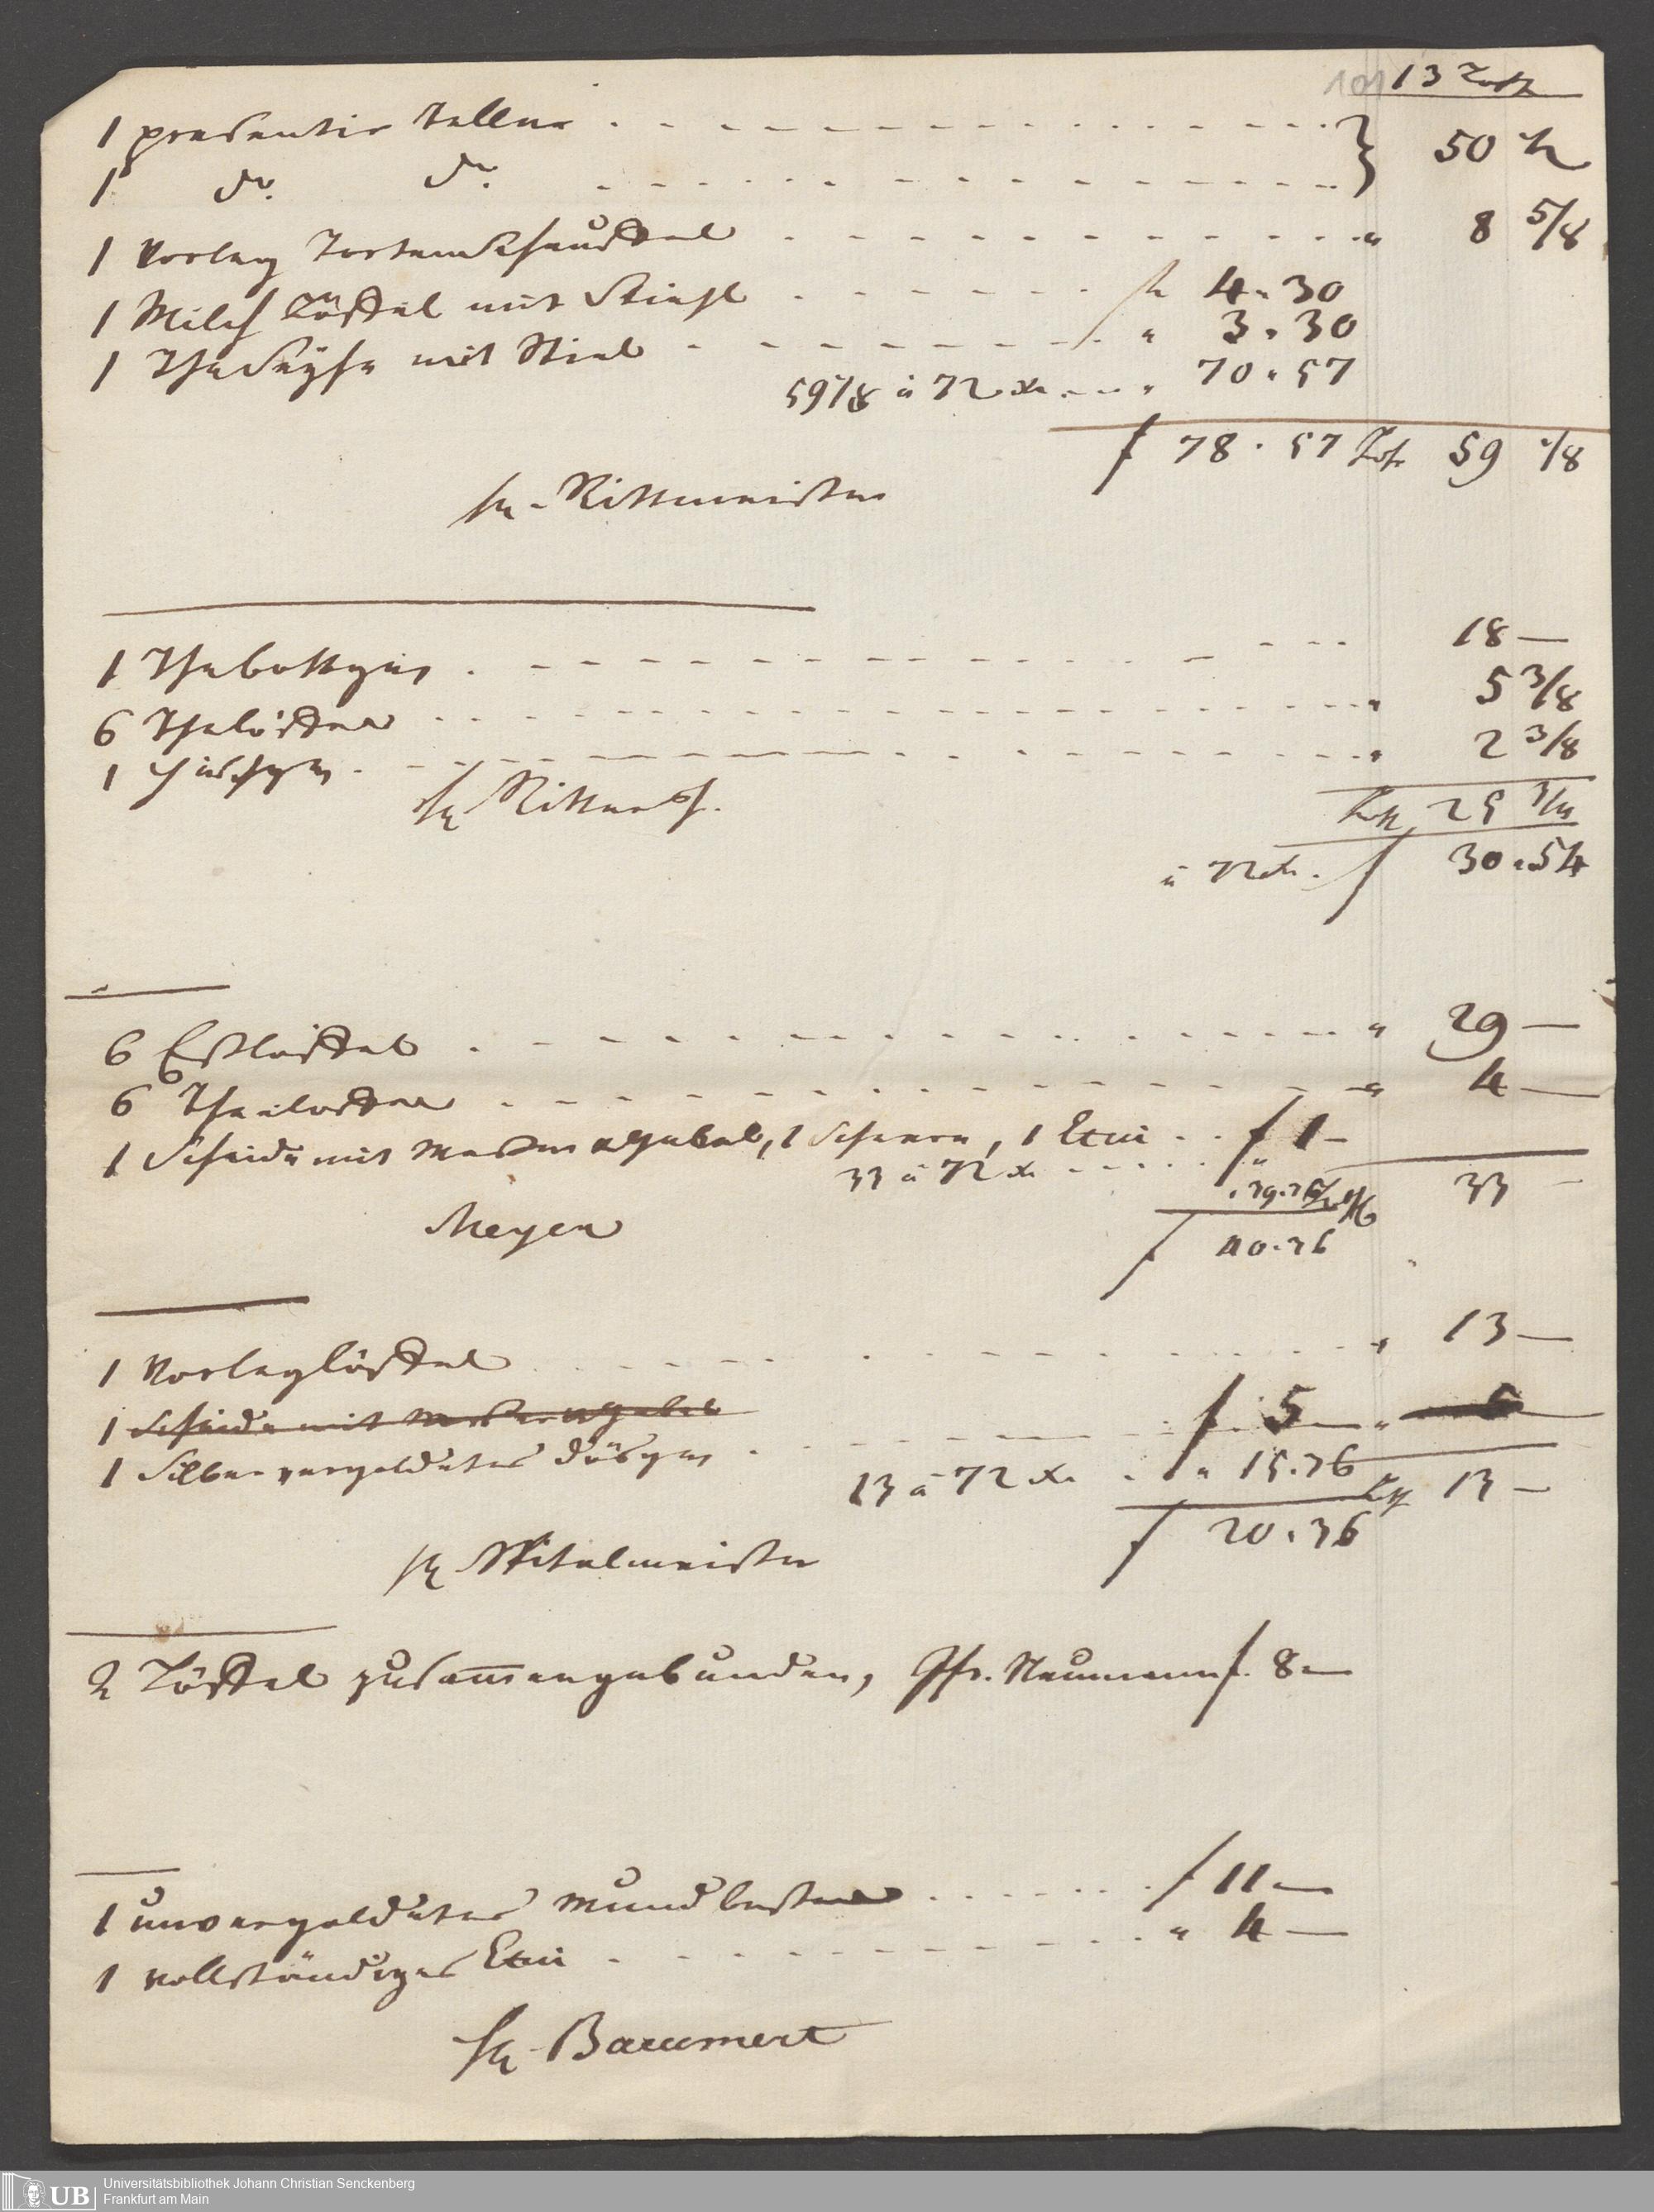 101 13 Loth
1 presentir Teller . - - - - - - - - - } 50 1/2
1 do. do. - - - - - - - - -
1 Vorleg Tortenschauffel - - - - - - - - - " 8 5/8
1 Milch Löffel mit Stiehl - - - - - f 4 " 30
1 Theeseyhe mit Stiel - - - - - - " 3 " 30
59 1/8 à 72 xr. - - " 70 " 57
f 78 . 57 Loth 59 1/8
H. Rittmeister
1 - - - - - - - 18 —
6 Thelöffel - - - - - - - " 5 3/8
1 - - - - - - - " 2 3/8
H. Loth 25 3/4
à 72 xr. f 30 " 54
6 Esslöffel - - - - - - - - - " 29 —
6 Theelöffel - - - - - - - - - " 4 —
1 Scheide mit Messer u Gabel, 1 Scheere, 1 Etui . . f 1 —
33 à 72 xr - - - - " 39.36 Loth 33 —
Meyer
f 40.36
1 Vorleglöffel - - - - - - - " 13 —
1 Scheide mit Messer u Gabel
1 Silber vergoldetes Dösgen - - - - f. 5 — "
13 à 72 xr. " 15.36 Loth 13 —
f 20 . 36
H. Spitalmeister
2 Löffel zusammengebunden, Neumann f. 8 —
1 unvergoldeter Mundbecher . . . . . . f 11 —
1 vollständiges Etui - - - - - - - " 4 —
H. Baumert
UB Universitätsbibliothek Johann Christian Senckenberg
Frankfurt am Main